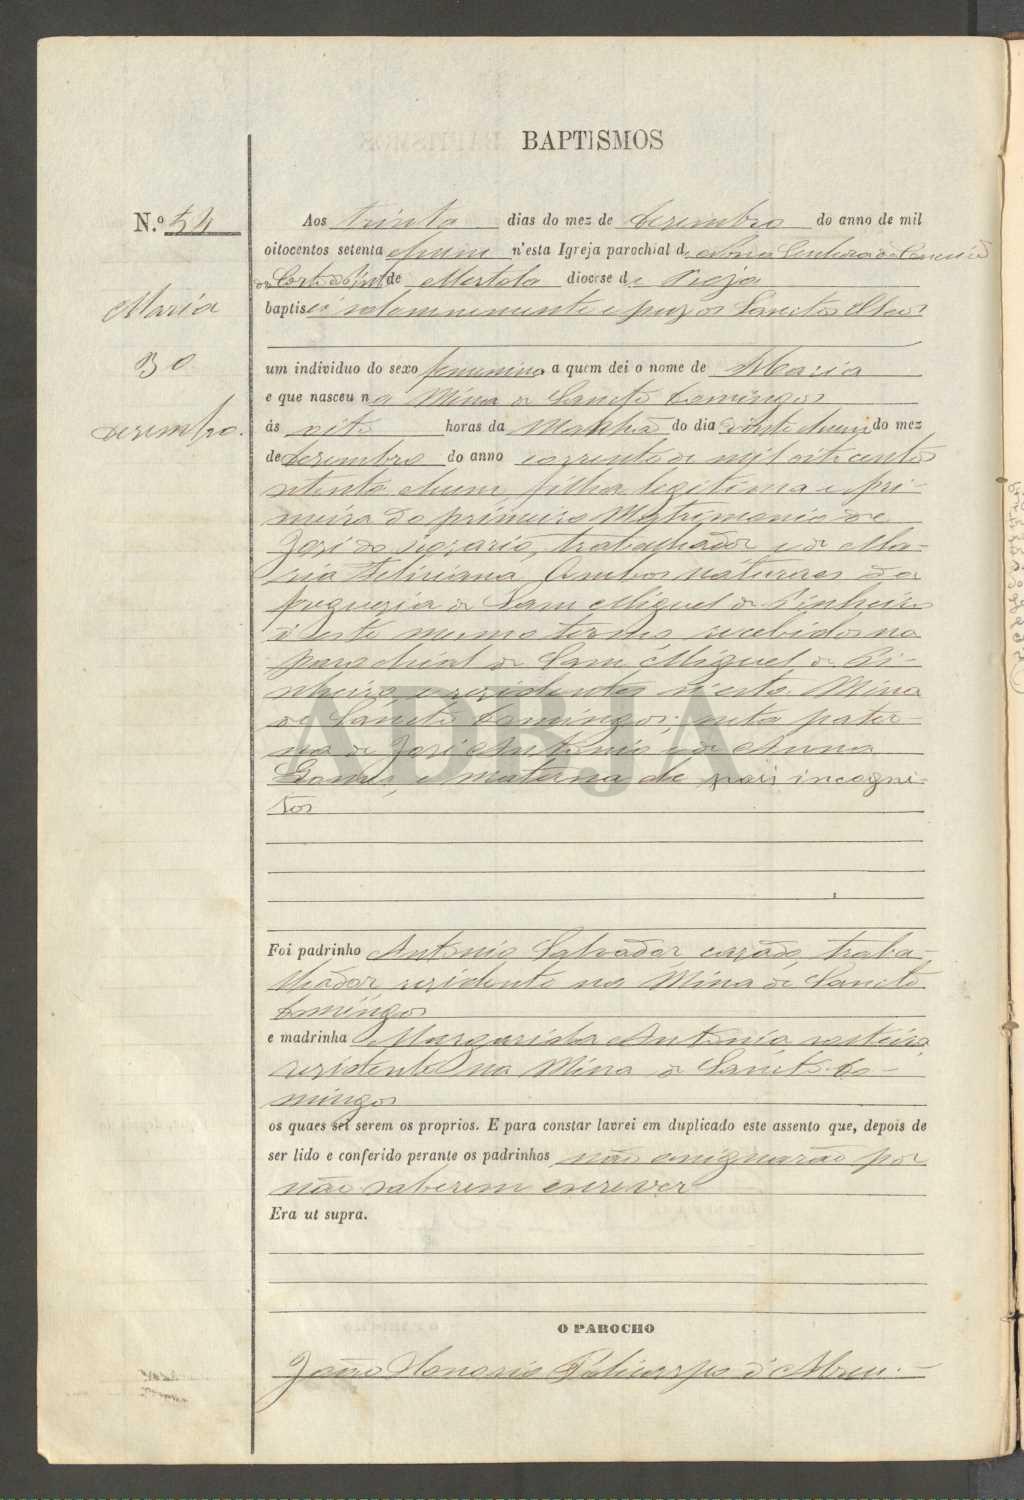 BAPTISMOS
N.º 54
Maria
30
Dezembro.
Aos trinta dias do mez de Dezembro do anno de mil
oitocentos setenta e hum n'esta Igreja parochial de Nossa Senhora da Conceição
da Corte do Pinto de Mertola diocese de Beja
baptisei solemnemente e puz os Sanctos Oleos
um individuo do sexo femenino a quem dei o nome de Maria
e que nasceu na Mina de Sancto Domingos
ás oito horas da Manhã do dia vinte e hum do mez
de Dezembro do anno corrente de mil oitocentos
setenta e hum, filha legitima e pri-
meira do primeiro Matrimonio de
José do Rozario, trabalhador e de Ma-
ria Feliciana, Ambos naturaes da
freguezia de Sam Miguel do Pinheiro
d'este mesmo termo, recebidos na
parochial de Sam Miguel do Pi-
nheiro, e rezidentes n'esta Mina
de Sancto Domingos; neta pater-
na de José Antonio, e de Anna
Gomes, e materna de pais incogni-
tos
Foi padrinho Antonio Salvador cazado, traba-
lhador, rezidente na Mina de Sancto
Domingos
e madrinha Margarida Antonia solteira,
rezidente na Mina de Sancto Do-
mingos
os quaes sei serem os proprios. E para constar lavrei em duplicado este assento que, depois de
ser lido e conferido perante os padrinhos não assignarão por
não saberem escrever
Era ut supra.
O PAROCHO
João Honorio Policarpo d'Abreu.
ADBJA